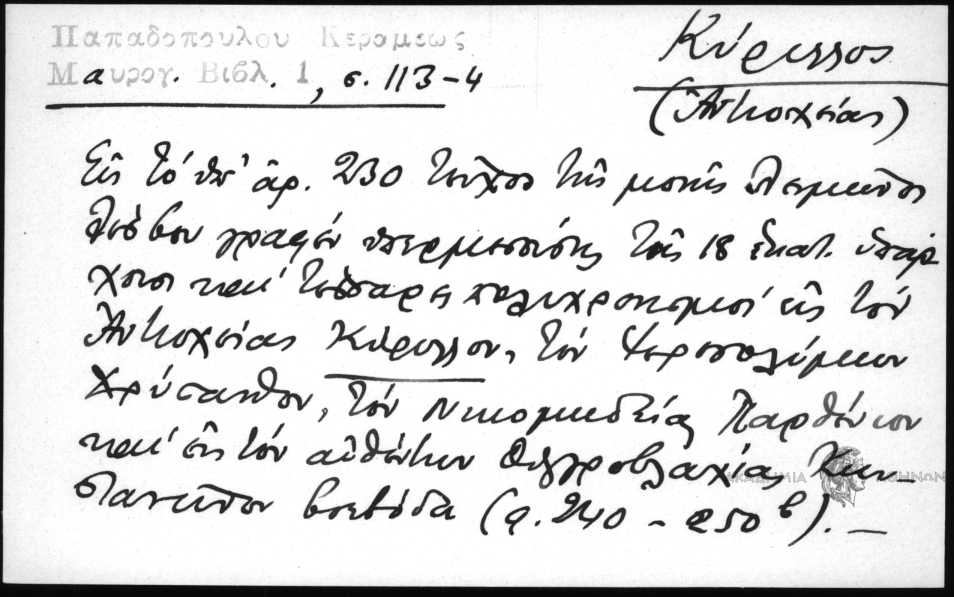 Παπαδοπουλου Κεραμεως
Μαυρογ. Βιβλ. 1, σ. 113-4
Κύριλλος
(Ἀντιοχείας)
Εἰς τὸ ὑπ' ἀρ. 230 τεῦχος τῆς μονῆς Λειμῶνος
Λέσβου γραφὲν ὑπερμεσούσης τῆς 18 ἑκατ. ὑπάρ
χουσι καὶ τέσσαρες πολυχρονισμοὶ εἰς τὸν
Ἀντιοχείας Κύριλλον, τὸν Ἱεροσολύμων
Χρύσανθον, τὸν Νικομηδείας Παρθένιον
καὶ εἰς τὸν αὐθέντην Οὑγγροβλαχίας Κων-
σταντῖνον βοεβόδα (φ. 240 - 250β). —
ΑΚΑΔΗΜΙΑ ΑΘΗΝΩΝ